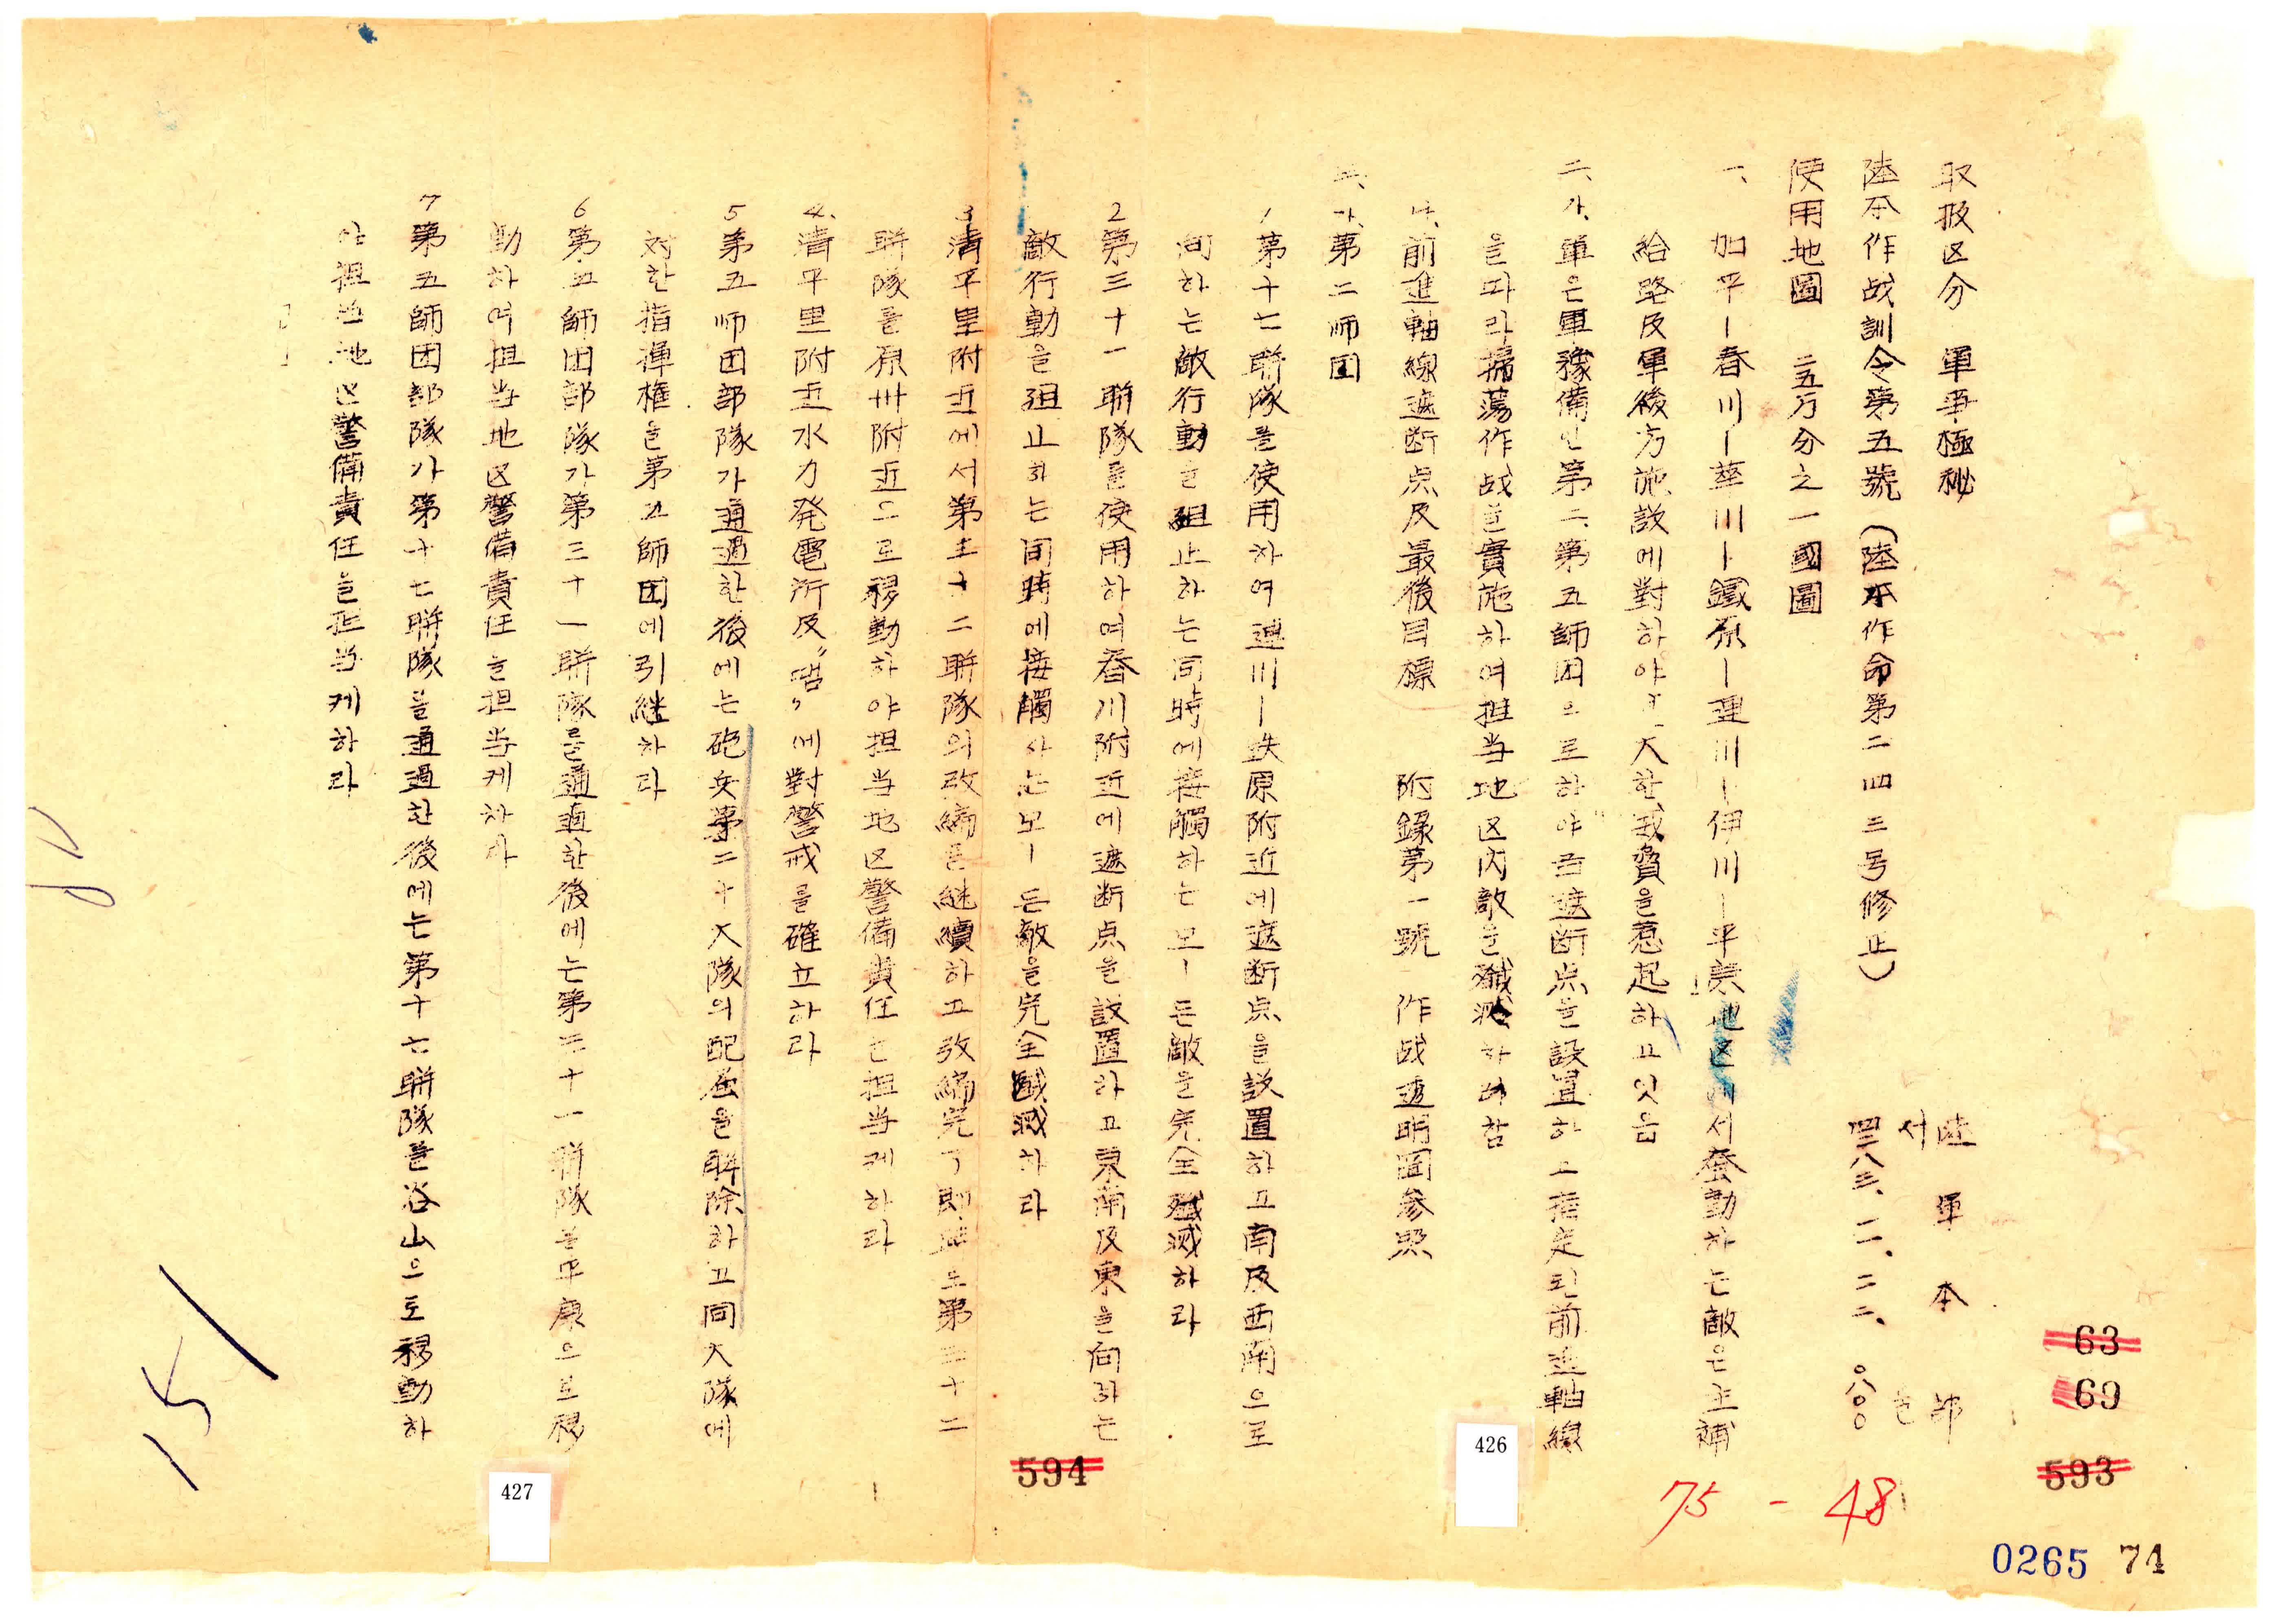 取扱区分 軍事極秘
陸軍本部
서울
四二八三、一一、二二、〇八〇〇
陸本作战訓令第五號 (陸本作命第二四三号修正)
使用地圖 二五万分之一國圖
一、加平ー春川ー華川ー鐵原ー連川ー伊川ー平康地区에서蠢動하는敵은主補
給路及軍後方施設에對하야大한威脅을惹起하고잇음
二、가、軍은軍豫備인第二、第五師団으로하야금遮断点을設置하고指定된前進軸線
을따라掃蕩作战을實施하여担当地区內敵을殲滅하려함
나、前進軸線遮断点及最後目標 附錄第一號 作战透明圖參照
三、가、第二师団
1 第十七聯隊을使用하여連川ー鉄原附近에遮断点을設置하고南及西南으로
向하는敵行動을阻止하는同時에接觸하는모ー든敵을完全殲滅하라
2 第三十一聯隊를使用하여春川附近에遮断点을設置하고東南及東을向하는
敵行動을阻止하는同時에接觸하는모ー든敵을完全殲滅하라
3 清平里附近에서第三十二聯隊의改編을継續하고改編完了即時로第三十二
聯隊를原州附近으로移動하야担当地区警備責任을担当케하라
4、清平里附近水力発電所及“땜”에對警戒를確立하라
5 第五师团部隊가通過한後에는砲兵第二十大隊의配屬을解除하고同大隊에
対한指揮権을第五師団에引継하라
6 第五師団部隊가第三十一聯隊를通過한後에는第三十一聯隊를平康으로移
動하여担当地区警備責任을担当케하라
7 第五師団部隊가第十七聯隊를通過한後에는第十七聯隊를谷山으로移動하
야担当地区警備責任을担当케하라
63
69
593
594
426
427
75 - 48
0265 74
151